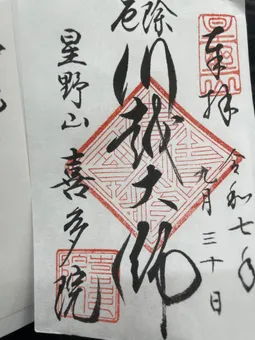 奉拝
令和七年
九月三十日
厄除
川越大師
星野山
喜多院